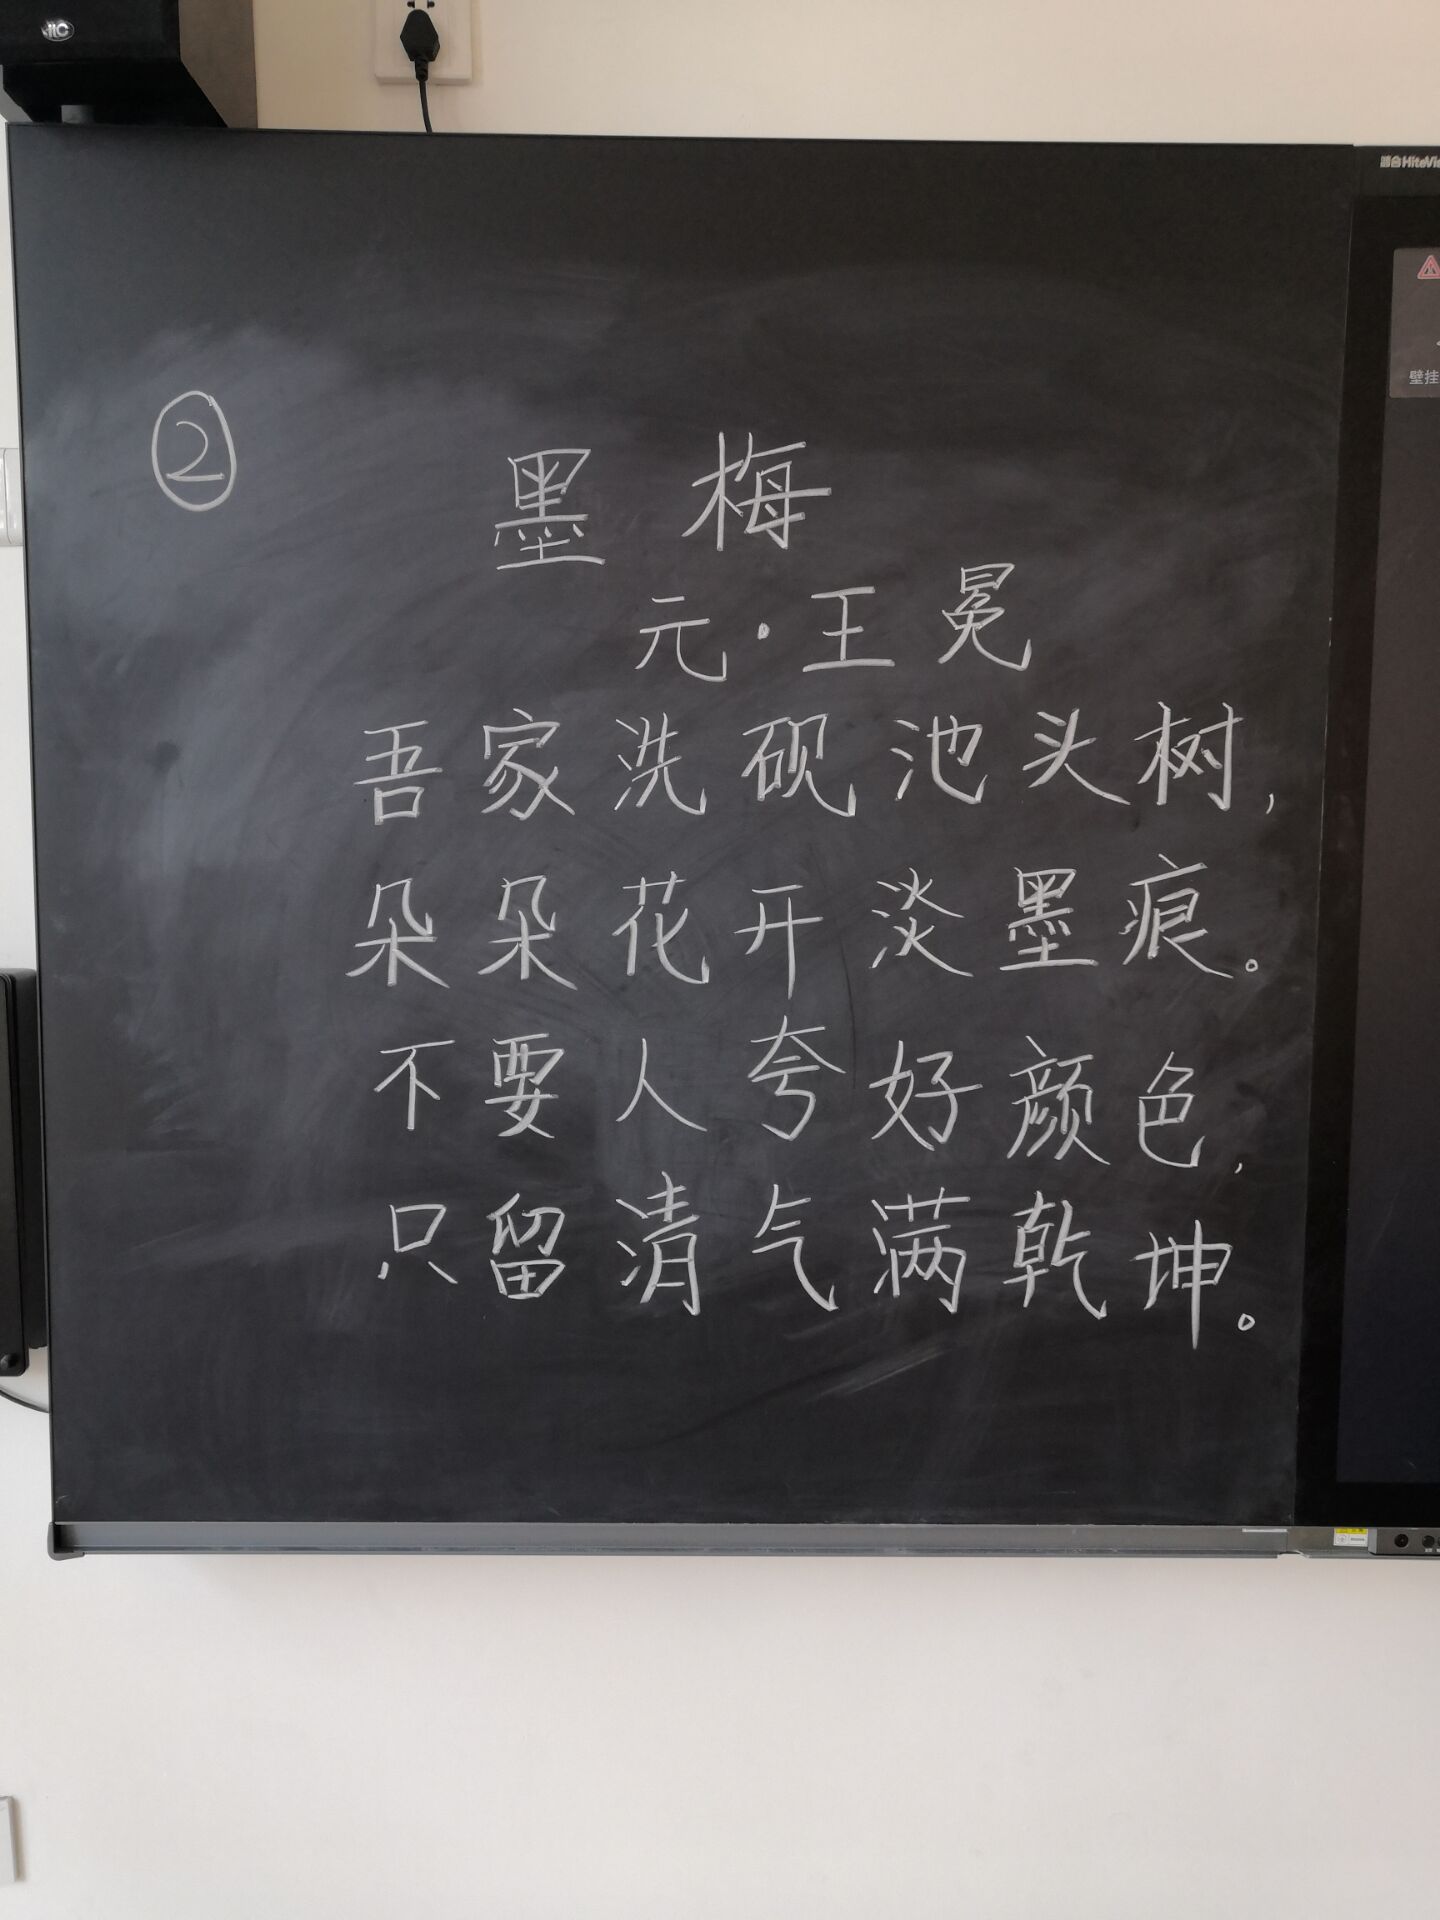 itc
鸿合HiteVi
壁挂
②
墨梅
元·王冕
吾家洗砚池头树,
朵朵花开淡墨痕。
不要人夸好颜色,
只留清气满乾坤。